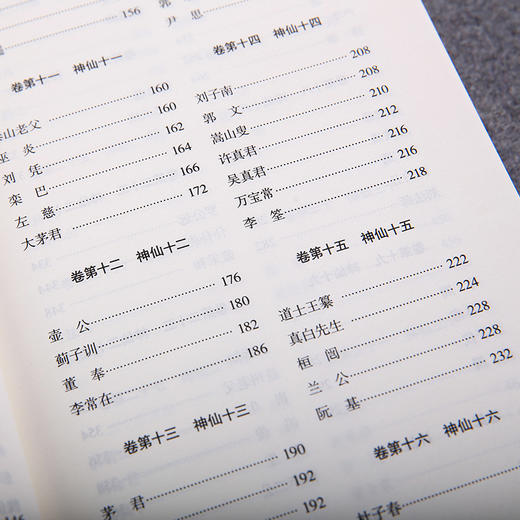 156
卷第十一 神仙十一
泰山老父 160
巫炎 160
刘凭 162
栾巴 164
左慈 166
大茅君 172
卷第十二 神仙十二
壶公 176
蓟子训 180
董奉 182
李常在 186
卷第十三 神仙十三
茅君 190
192
192
尹思
卷第十四 神仙十四
刘子南 208
郭文 208
嵩山叟 210
许真君 212
吴真君 216
万宝常 216
李筌 218
卷第十五 神仙十五
道士王纂 222
真白先生 224
桓闿 228
兰公 228
阮基 232
卷第十六 神仙十六
杜子春